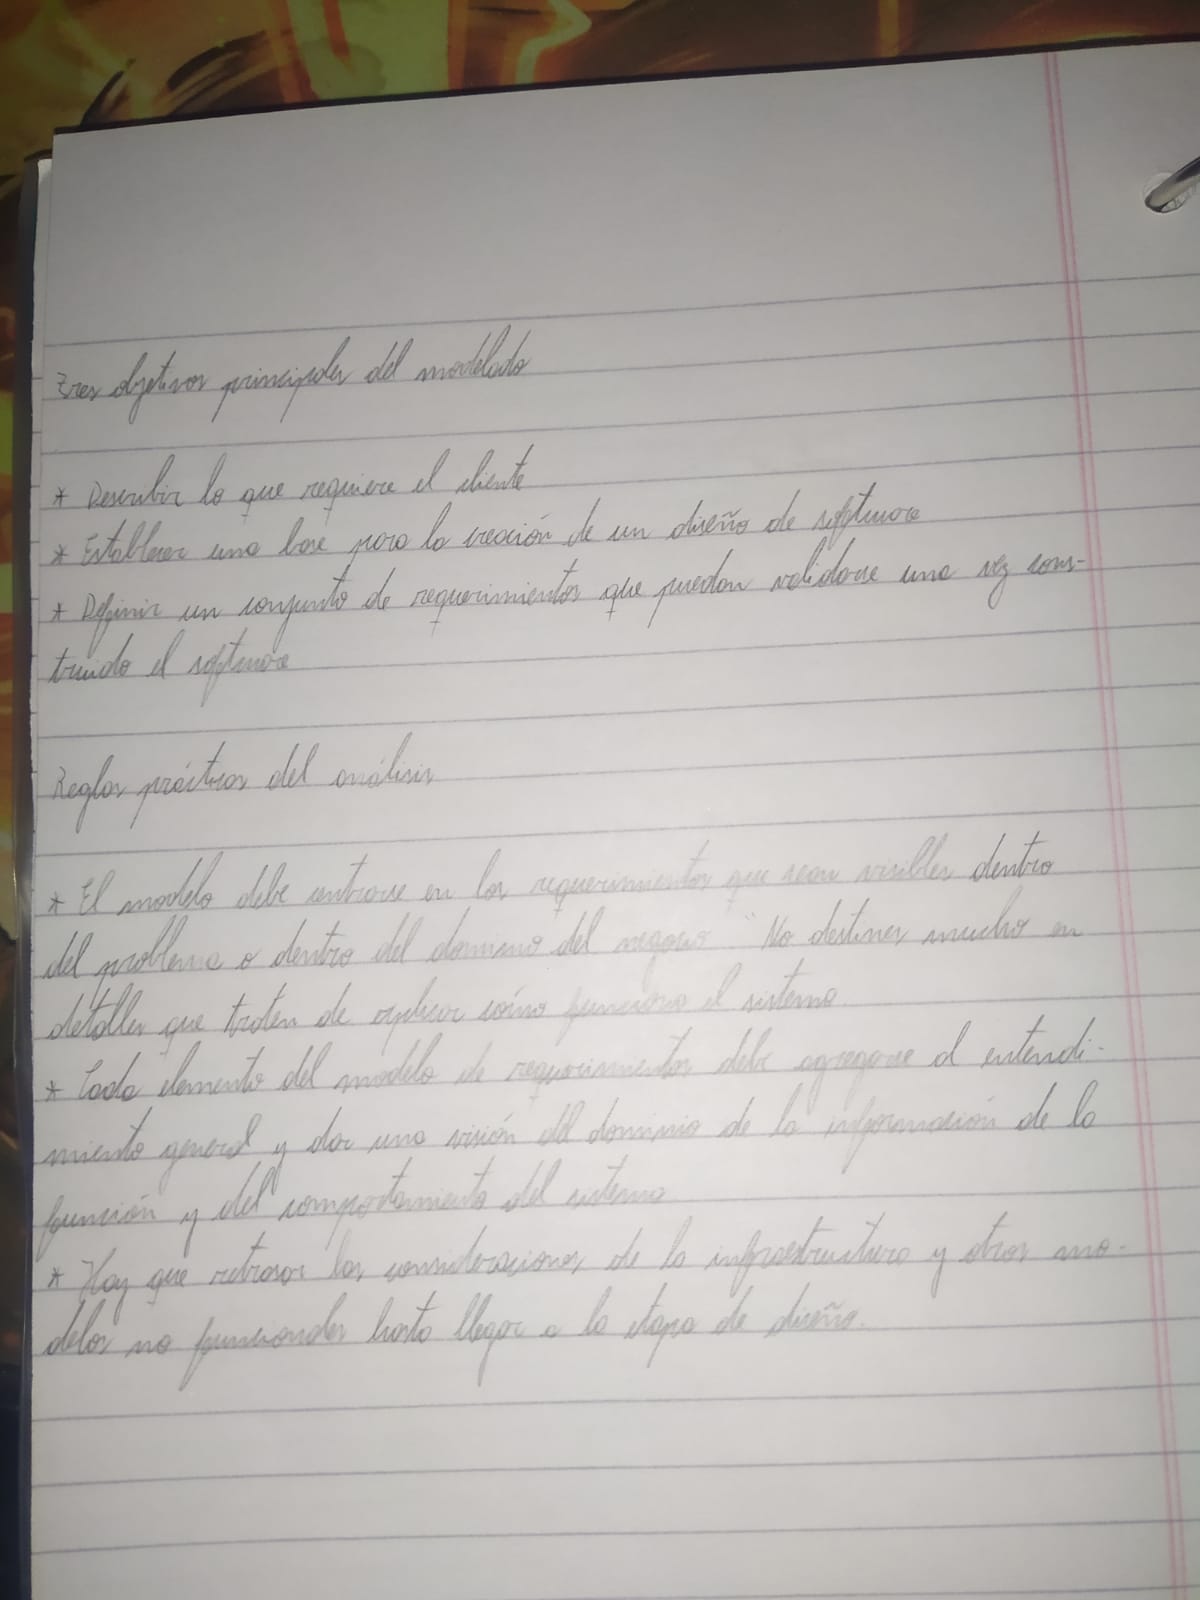 Tres objetivos principales del modelado
* Describir lo que requiere el cliente
* Establecer una base para la creación de un diseño de software
* Definir un conjunto de requerimientos que puedan validarse una vez cons-
truido el software
Reglas prácticas del análisis
* El modelo debe centrarse en los requerimientos que sean visibles dentro
del problema o dentro del dominio del negocio "No destines mucho en
detalles que traten de explicar cómo funciona el sistema
* Cada elemento del modelo de requerimientos debe agregarse al entendi-
miento general y dar una visión del dominio de la información de la
función y del comportamiento del sistema
* Hay que retrasar las consideraciones de la infraestructura y otros mo-
delos no funcionales hasta llegar a la etapa de diseño.